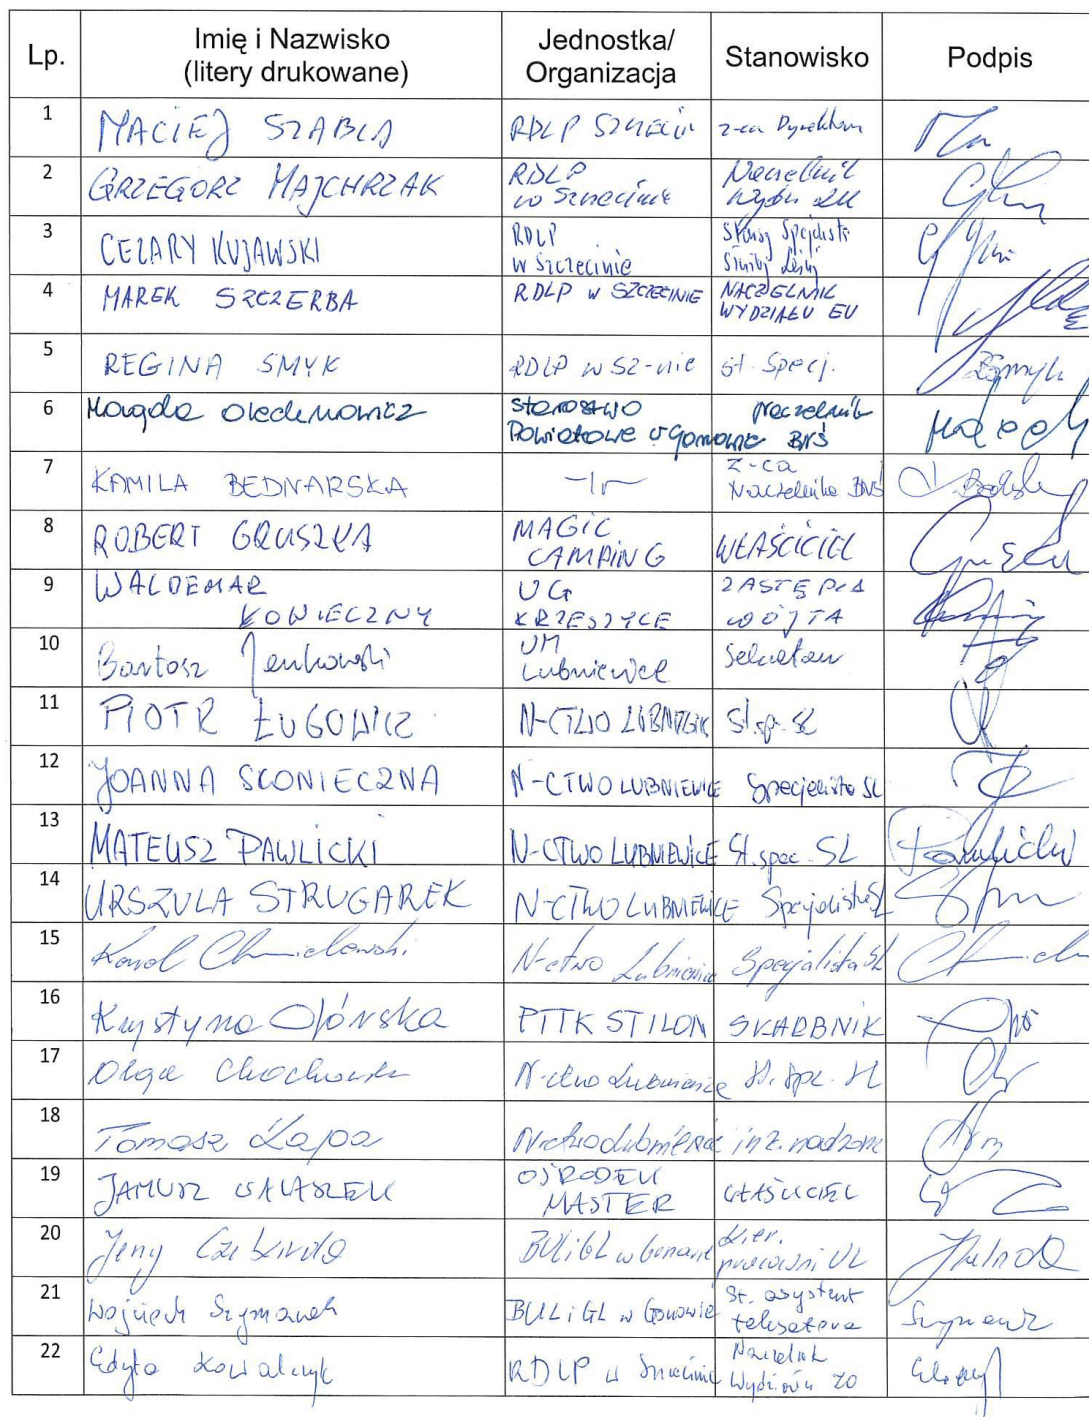 Lp. Imię i Nazwisko (litery drukowane) Jednostka/ Organizacja Stanowisko Podpis
1 MACIEJ SZABLA RDLP Szczecin z-ca Dyrektora
2 GRZEGORZ MAJCHRZAK RDLP w Szczecinie Naczelnik
3 CEZARY KUJAWSKI RDLP w Szczecinie Starszy Specjalista Służby Leśnej
4 MAREK SZCZERBA RDLP w SZCZECINIE NACZELNIK WYDZIAŁU EU
5 REGINA SMYK RDLP w Sz-nie st. Specj.
6 Magda Olechnowicz Starostwo Powiatowe w Gorzowie naczelnik BNŚ
7 KAMILA BEDNARSKA -||- z-ca Naczelnika BNŚ
8 ROBERT GRUSZKA MAGIC CAMPING WŁAŚCICIEL
9 WALDEMAR KONIECZNY UG KRZESZYCE ZASTĘPCA WÓJTA
10 Bartosz Jankowski UM Lubniewice Sekretarz
11 PIOTR ŁUGOWICZ N-CTWO LUBNIEWICE St. sp. SL
12 JOANNA SŁONIECZNA N-CTWO LUBNIEWICE Specjalista SL
13 MATEUSZ PAWLICKI N-CTWO LUBNIEWICE St. spec. SL Pawlicki
14 URSZULA STRUGAREK N-CTWO LUBNIEWICE Specjalista SL
15 Karol Chmielewski N-ctwo Lubniewice Specjalista SL
16 Krystyna PTTK STILON SKARBNIK
17 Olga N-ctwo Lubniewice St. spc. SL
18 Tomasz Łapa N-ctwo Lubniewice inż. nadzoru
19 JANUSZ OŚRODEK MASTER WŁAŚCICIEL
20 Jerzy BULiGL w Gorzowie kier. pracowni UL
21 Wojciech Szymanek BULiGL w Gorzowie St. asystent
22 Edyta Kowalczyk RDLP w Szczecinie Naczelnik Wydziału ZO